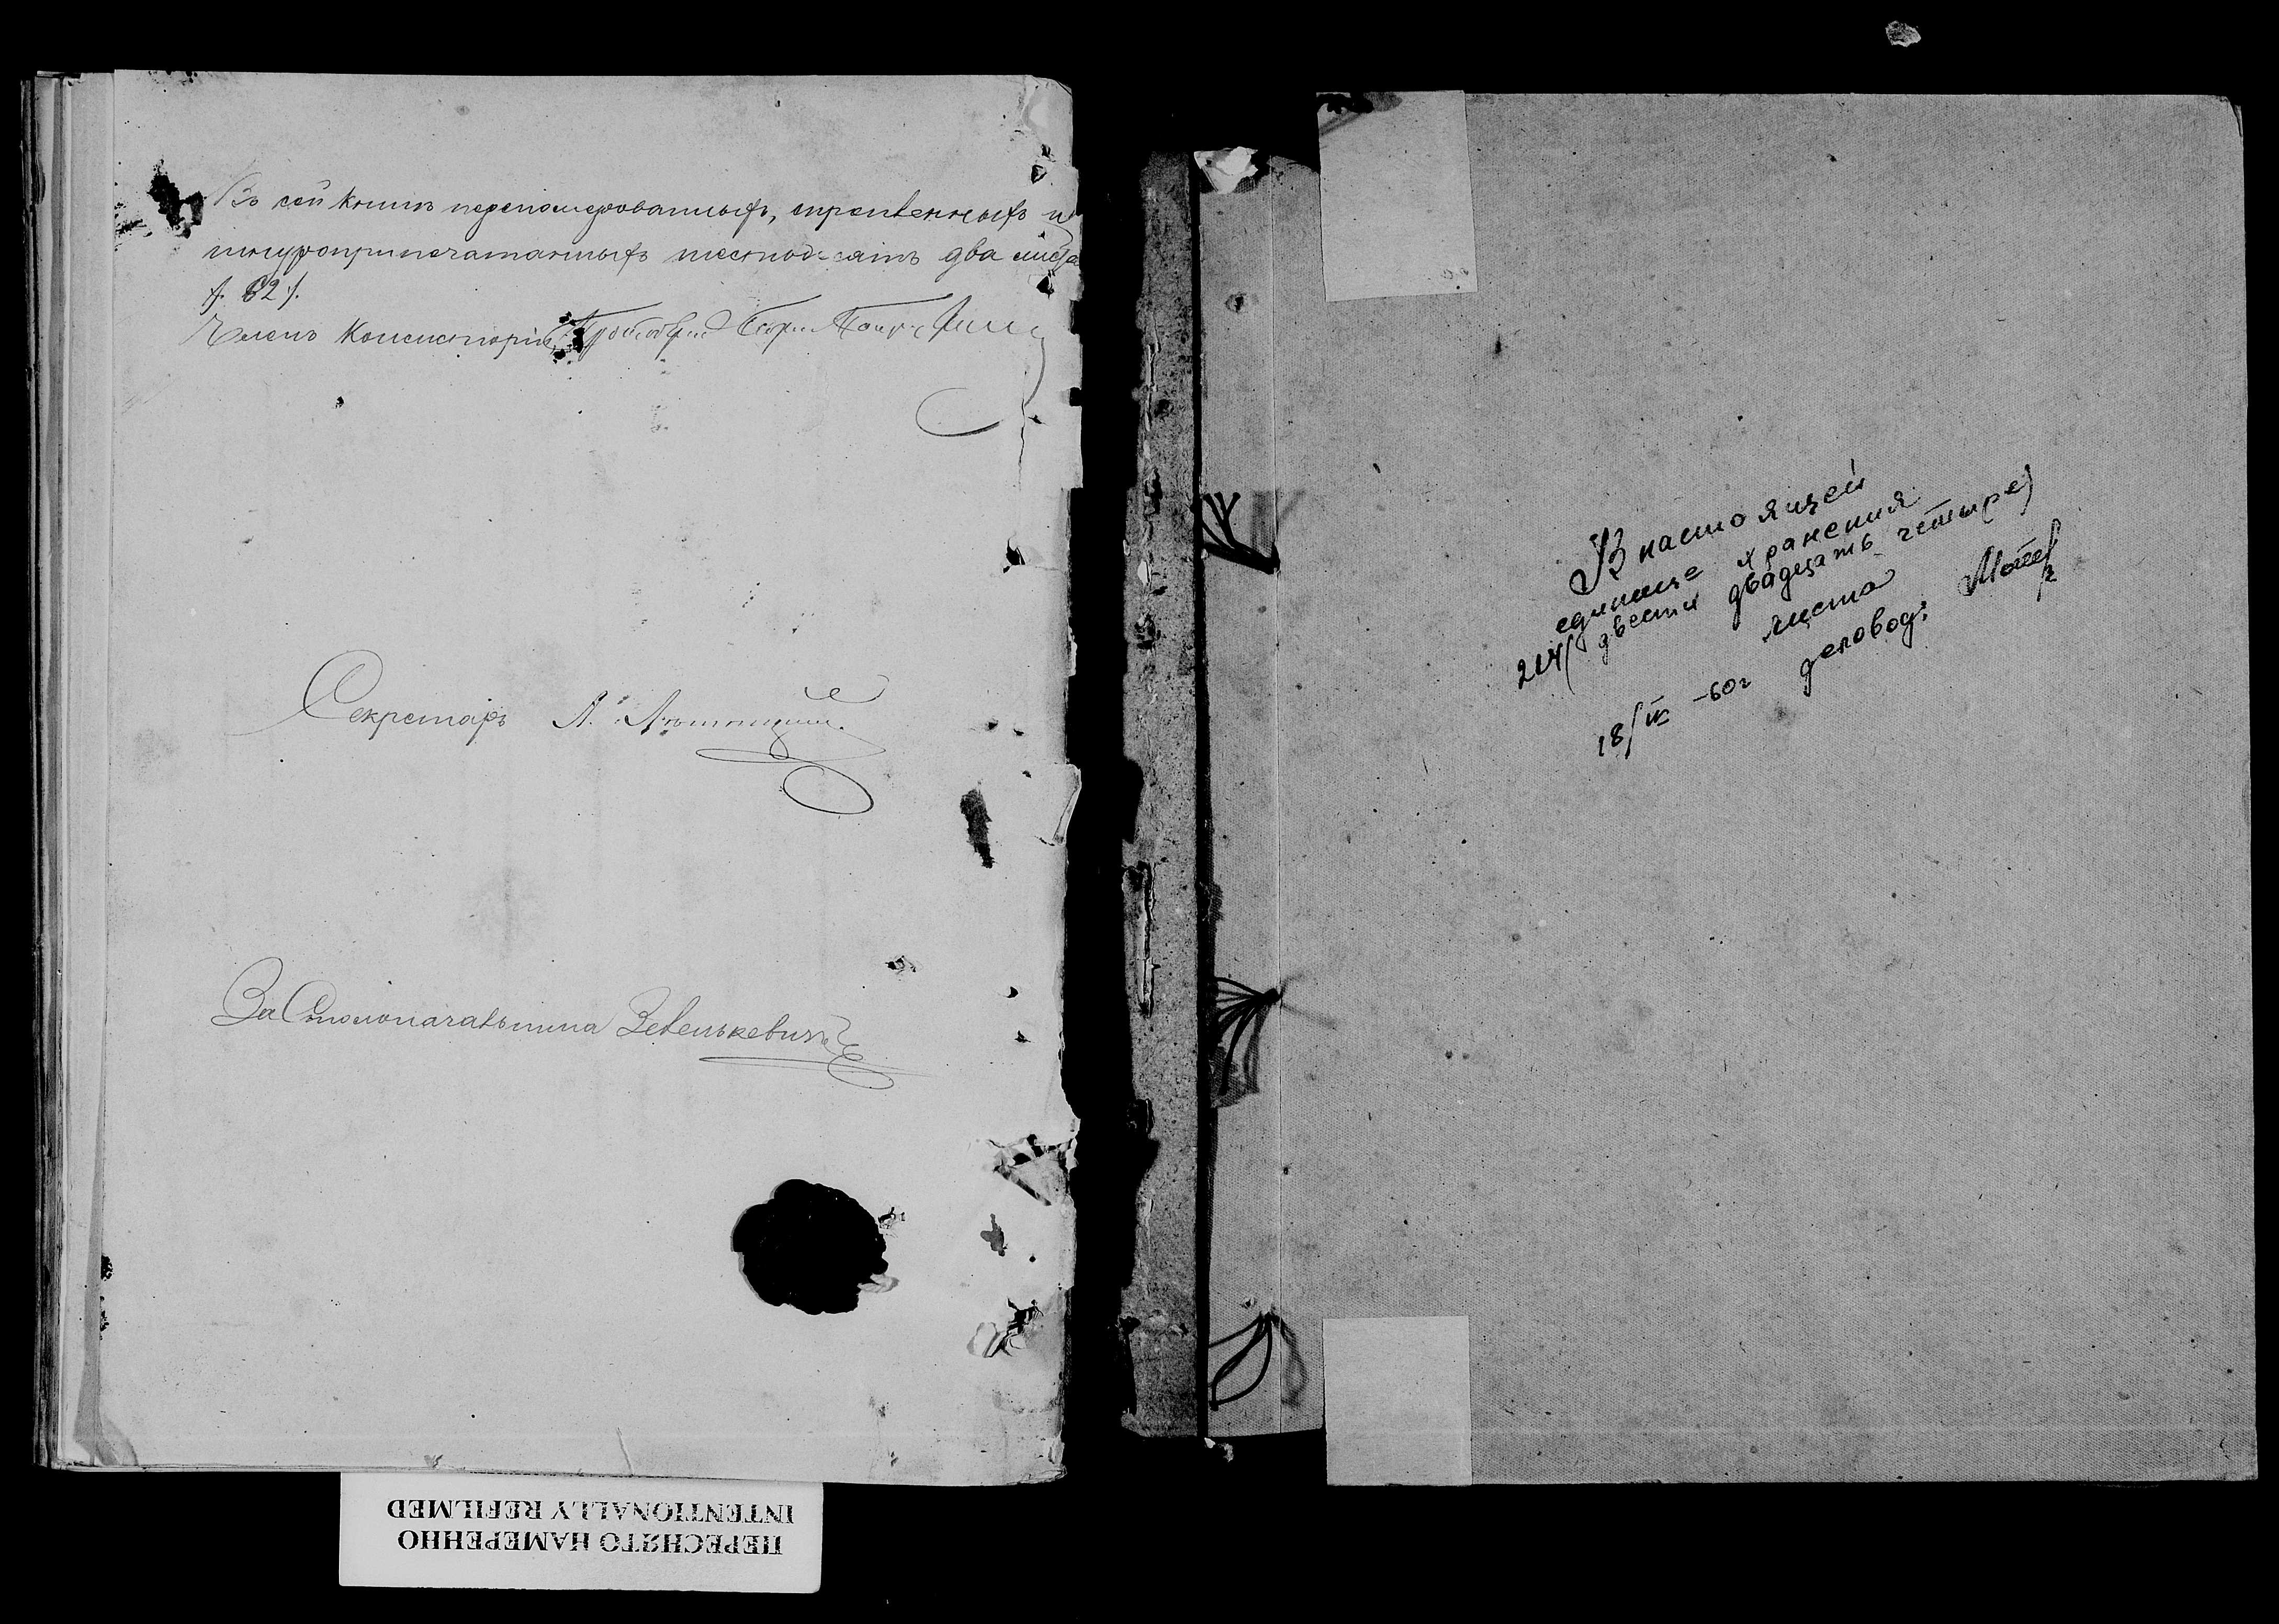 Въ сей книгѣ перенумерованныхъ, скрѣпленныхъ и
шнуроприпечатанныхъ шестьдесятъ два листа
/. 62 /.
Членъ Консисторіи
Секретарь А.
За Столоначальника Зеленькевичъ
В настоящей
единице хранения
224 (двести двадцать четыре)
листа
18/IV -60г деловод:
ПЕРЕСНЯТО НАМЕРЕННО
INTENTIONALLY REFILMED